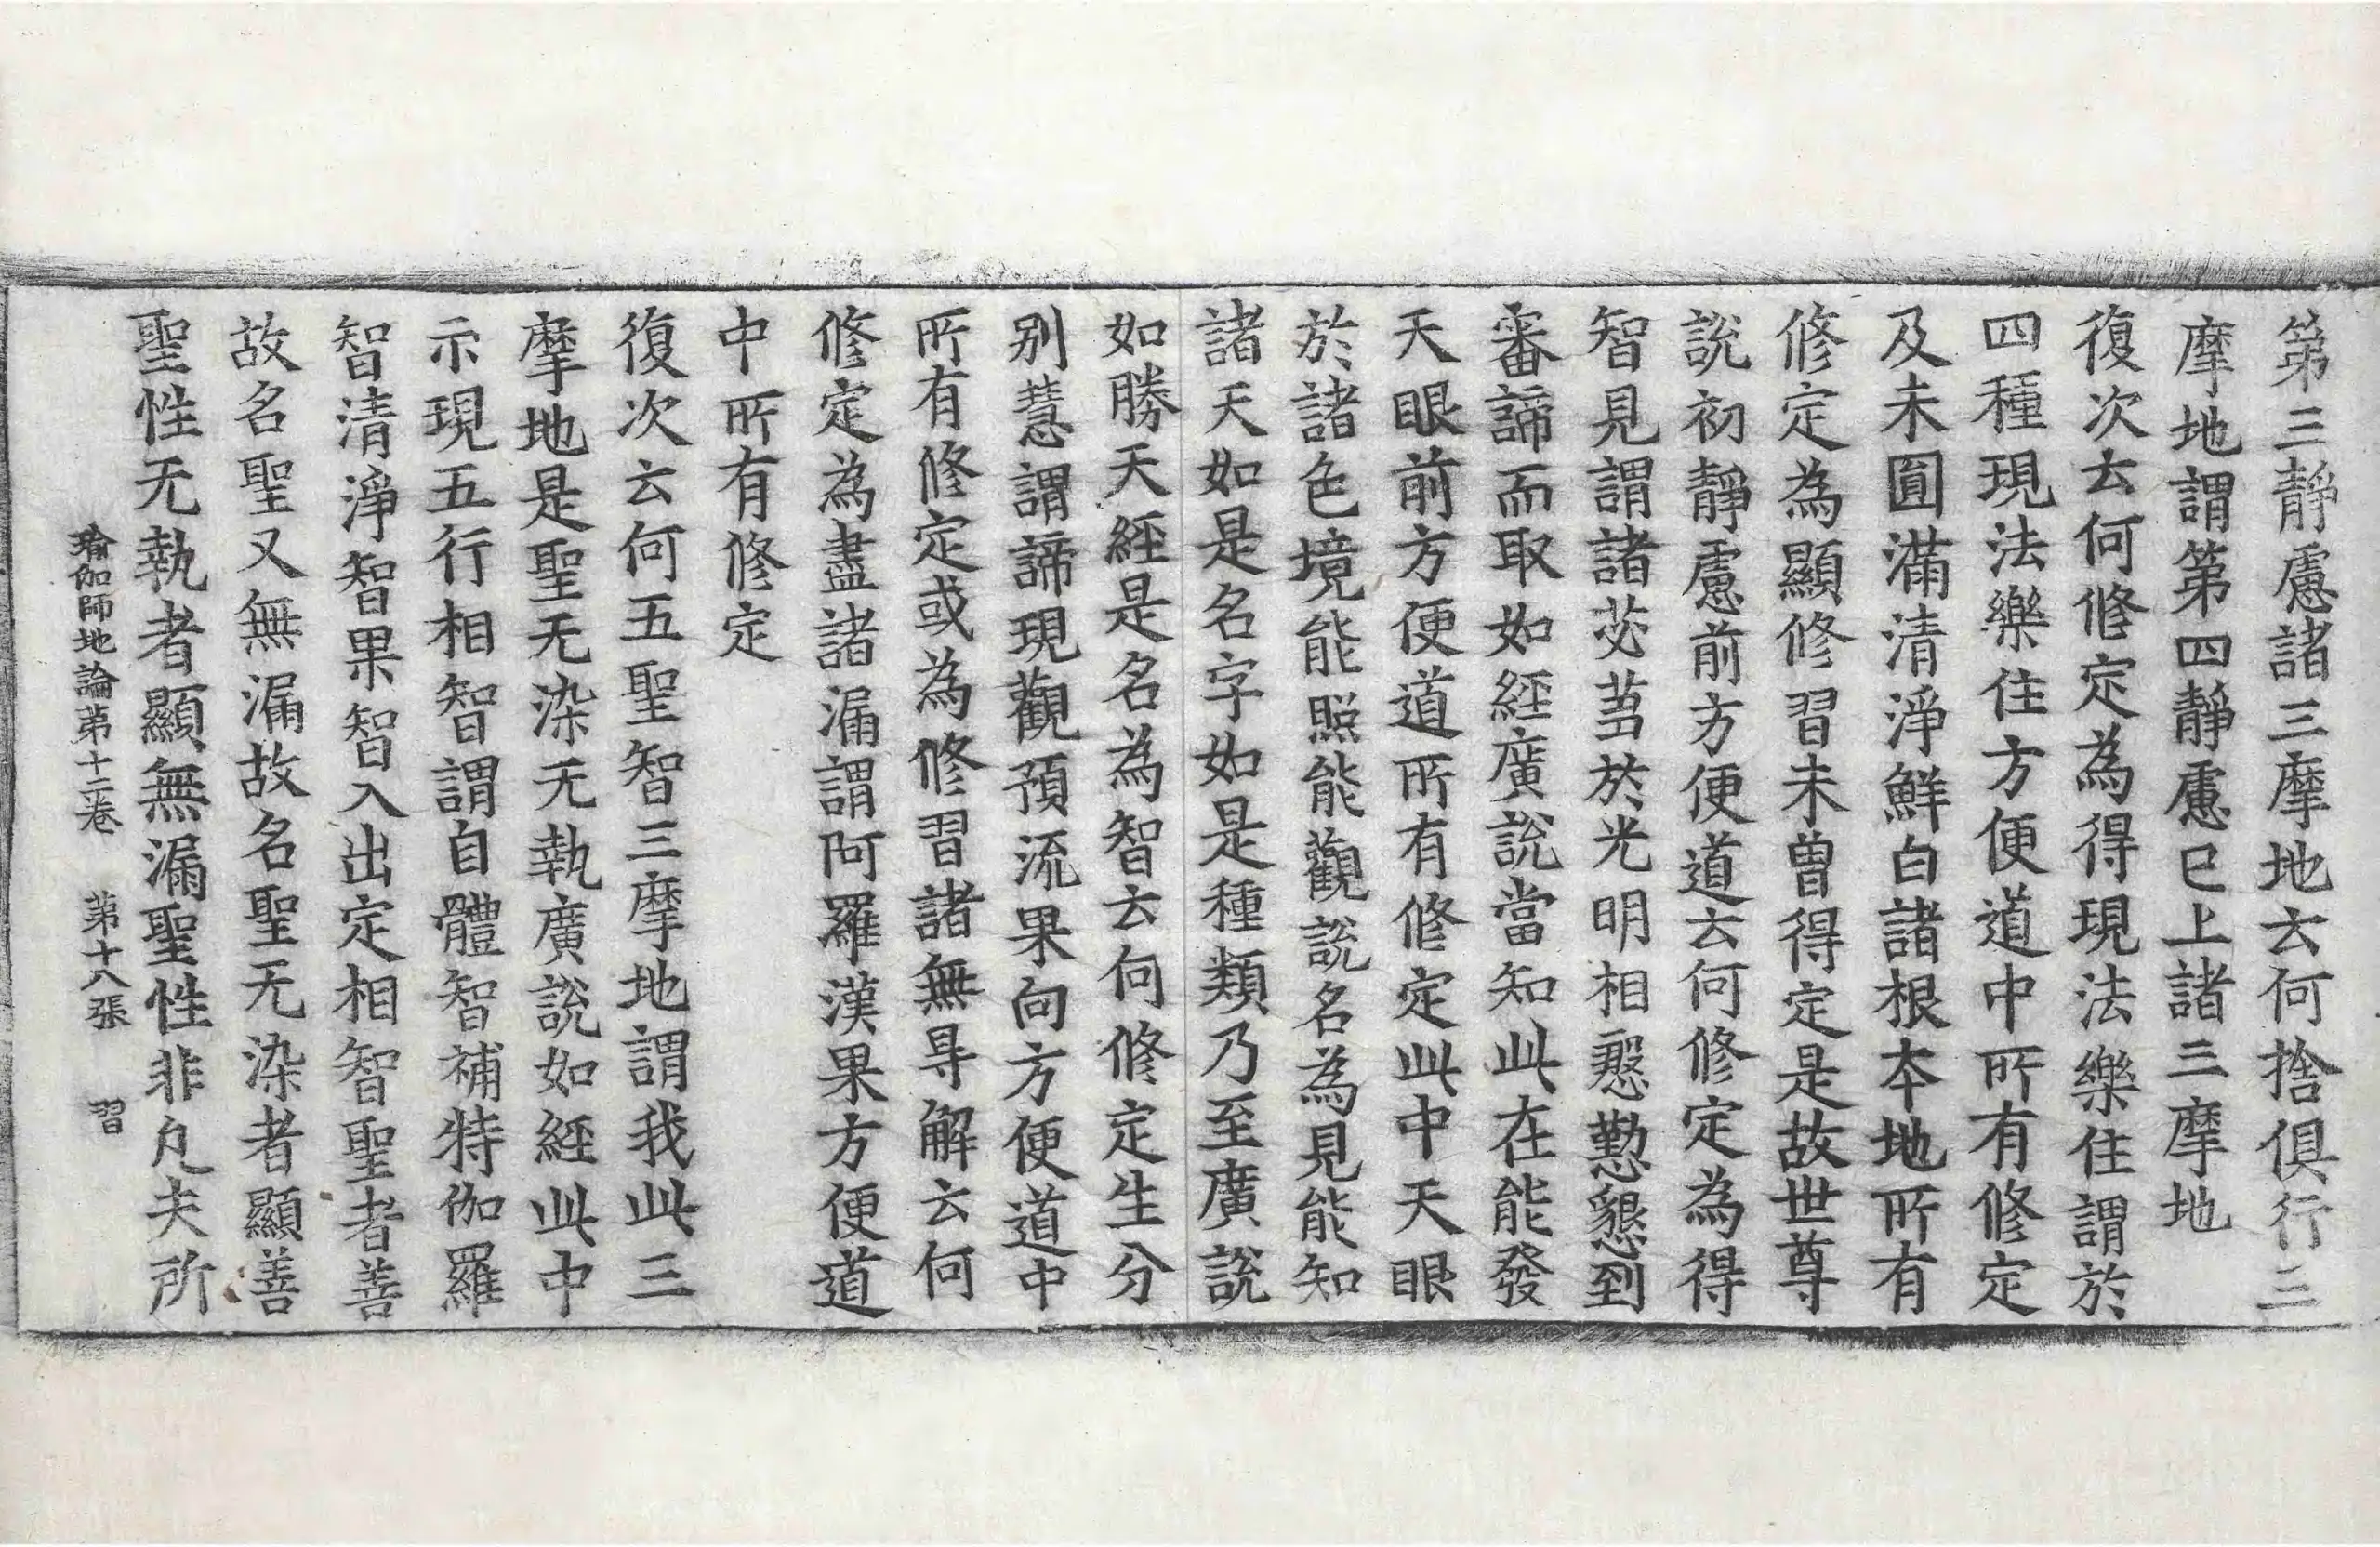 第三靜慮諸三摩地云何捨俱行三
摩地謂第四靜慮已上諸三摩地
復次云何修定為得現法樂住謂於
四種現法樂住方便道中所有修定
及未圓滿清淨鮮白諸根本地所有
修定為顯修習未曾得定是故世尊
說初靜慮前方便道云何修定為得
智見謂諸苾芻於光明相慇懃懇到
審諦而取如經廣說當知此在能發
天眼前方便道所有修定此中天眼
於諸色境能照能觀說名為見能知
諸天如是名字如是種類乃至廣說
如勝天經是名為智云何修定生分
别慧謂諦現觀預流果向方便道中
所有修定或為修習諸無㝵解云何
修定為盡諸漏謂阿羅漢果方便道
中所有修定
復次云何五聖智三摩地謂我此三
摩地是聖无染无執廣說如經此中
示現五行相智謂自體智補特伽羅
智清淨智果智入出定相智聖者善
故名聖又無漏故名聖无染者顯善
聖性无執者顯無漏聖性非凡夫所
瑜伽師地論第十二卷 第十八張 習